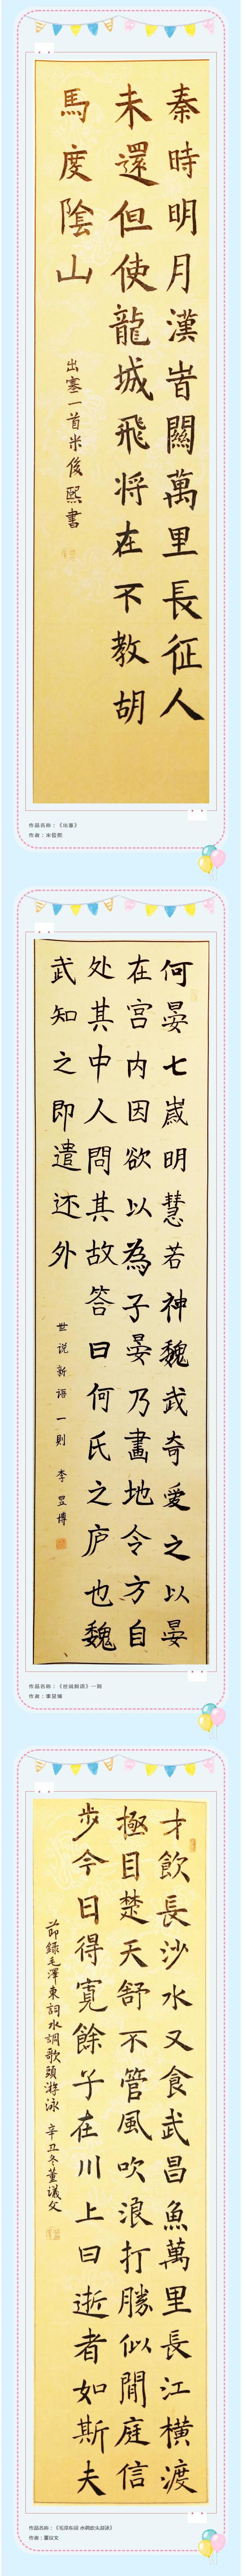 秦時明月漢時關萬里長征人
未還但使龍城飛将在不教胡
馬度陰山
出塞一首米俊熙書
作品名称：《出塞》
作者：米俊熙
何晏七歲明慧若神魏武奇愛之以晏
在宫内因欲以為子晏乃畫地令方自
处其中人問其故答曰何氏之庐也魏
武知之即遣还外
世说新语一则 李昱博
作品名称：《世说新语》一则
作者：李昱博
才飲長沙水又食武昌魚萬里長江橫渡
極目楚天舒不管風吹浪打勝似閒庭信
步今日得寬餘子在川上曰逝者如斯夫
節録毛澤東詞水調歌頭游泳 辛丑冬董議文
作品名称：《毛泽东词 水调歌头游泳》
作者：董议文